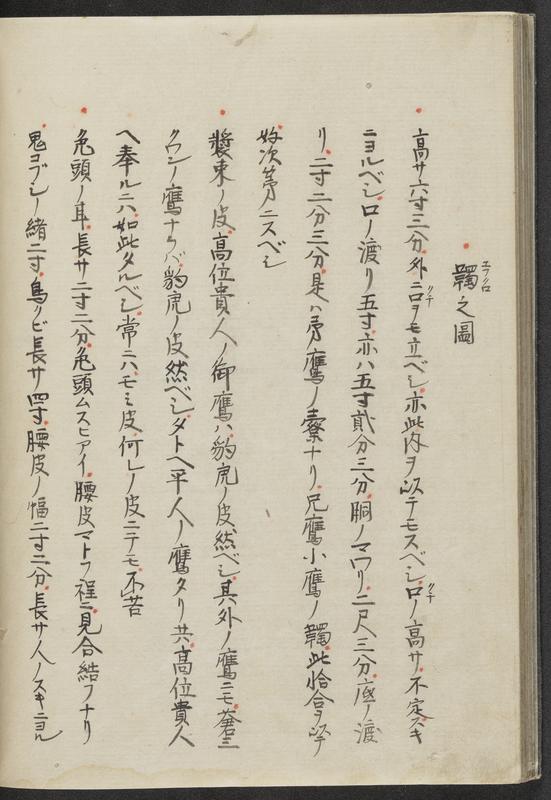 韝之圖
エフクロ
高サ六寸三分外ニロヲモ立ベシ亦此内ヲ以テモスベシ口ノ高サ不定スキ
ニヨルベシ口ノ渡リ五寸亦ハ五寸貳分三分胴ノマワリ二尺三分底ノ渡
リ二寸二分三分是ハ弟鷹ノ ナリ兄鷹小鷹ノ韝此恰合ヲ以テ
次第ニスベシ
装束ノ皮高位貴人ノ御鷹ハ豹虎ノ皮然ベシ其外ノ鷹ニモ蒼
クワシノ鷹ナクバ豹虎ノ皮然ベシタトヘ平人ノ鷹タリ共高位貴人
ヘ奉ルニハ如此タルベシ常ニハモミ皮何レノ皮ニテモ不苦
亀頭ノ耳長サ二寸二分亀頭ムスヒアイ腰皮マトフ程ニ見合結フナリ
鬼コブシノ緒二寸鳥クビ長サ四寸腰皮ノ幅二寸二分長サ人ノスキニヨル